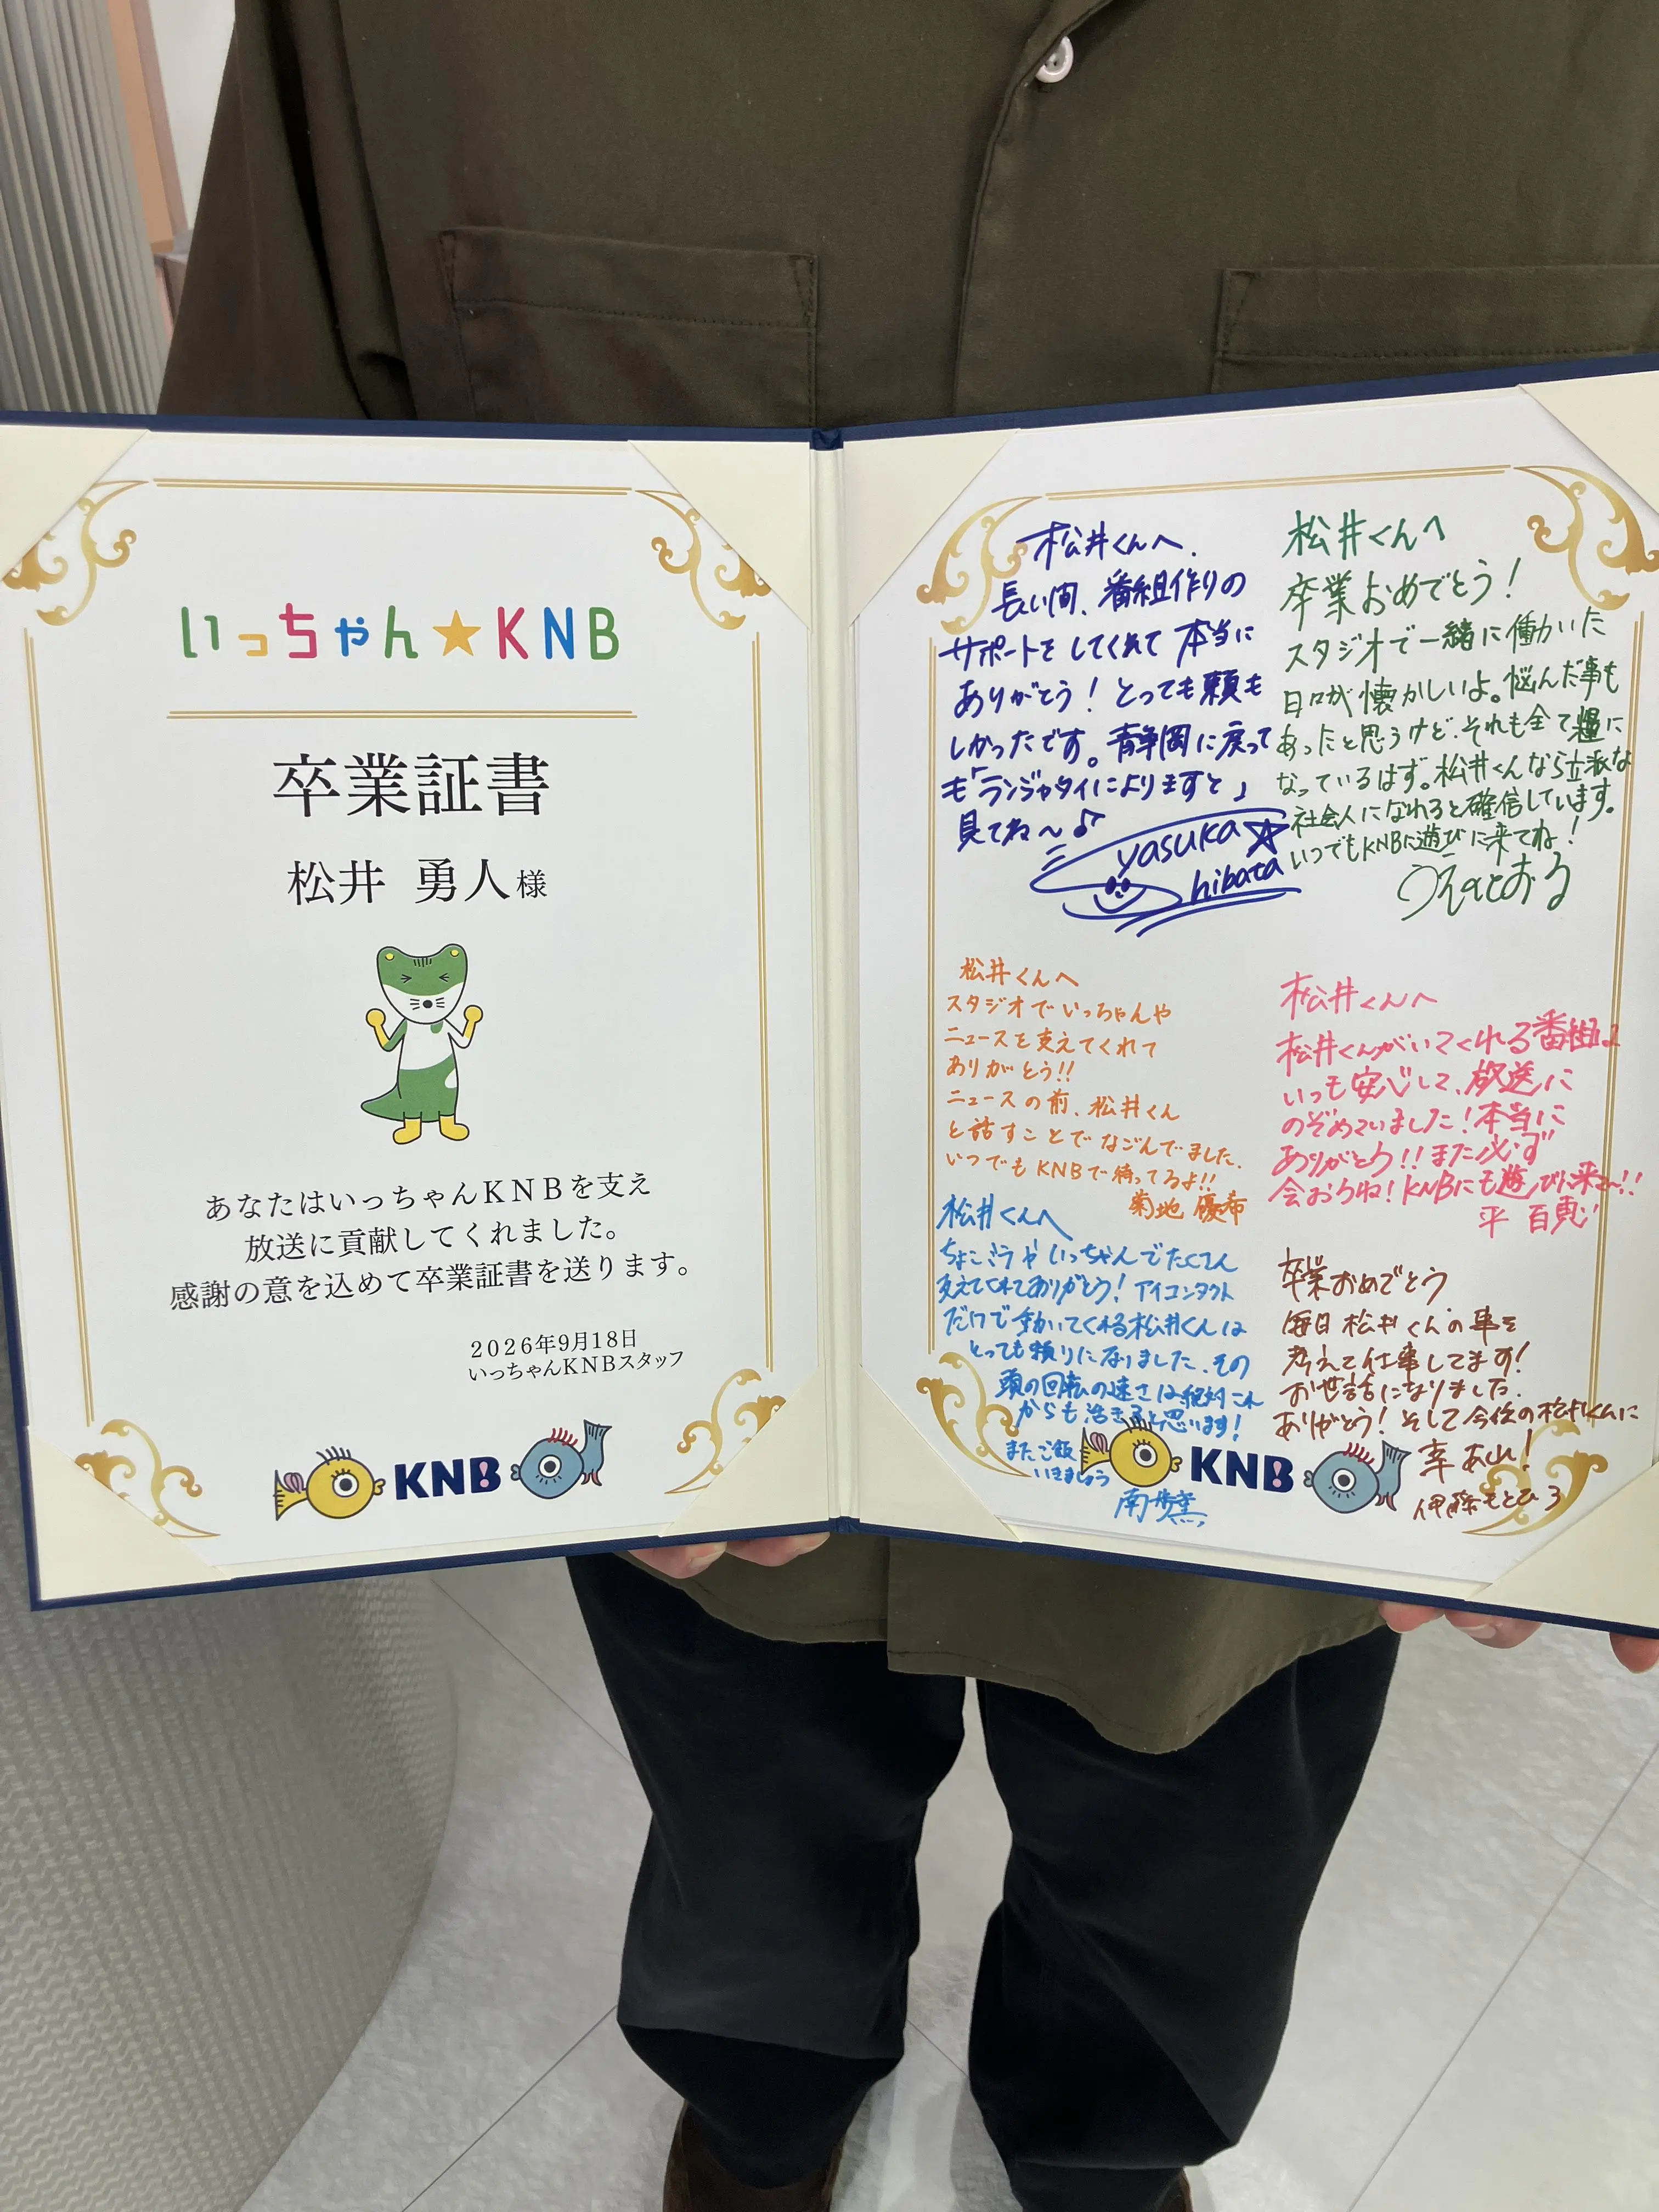 いっちゃん★KNB
卒業証書
松井 勇人様
あなたはいっちゃんKNBを支え
放送に貢献してくれました。
感謝の意を込めて卒業証書を送ります。
2026年9月18日
いっちゃんKNBスタッフ
KNB!
松井くんへ.
長い間、番組作りの
サポートをしてくれて本当に
ありがとう！とっても頼も
しかったです。静岡に戻って
も「ランジャタイによりますと」
見てね〜♪
yasuka
hibata
松井くんへ
卒業おめでとう！
スタジオで一緒に働いた
日々が懐かしいよ。悩んだ事も
あったと思うけど、それも全て糧に
なっているはず。松井くんなら立派な
社会人になれると確信しています。
いつでもKNBに遊びに来てね！
うえのとおる
松井くんへ
スタジオでいっちゃんや
ニュースを支えてくれて
ありがとう!!
ニュースの前、松井くん
と話すことでなごんでました.
いつでもKNBで待ってるよ!!
菊地 優希
松井くんへ
松井くんがいてくれる番組は
いつも安心して、放送に
のぞめていました！本当に
ありがとう!!また必ず
会おうね！KNBにも遊びに来て〜!!
平 百恵
松井くんへ
ちょこボラやいっちゃんでたくさん
支えてくれてありがとう！アイコンタクト
だけで動いてくれる松井くんは
とっても頼りになりました.その
頭の回転の速さは絶対これ
からも活きると思います！
またご飯
いきましょう
南
卒業おめでとう
毎日松井くんの事を
考えて仕事してます！
お世話になりました.
ありがとう！そして今後の松井くんに
幸あれ！
伊藤もとひろ
KNB!